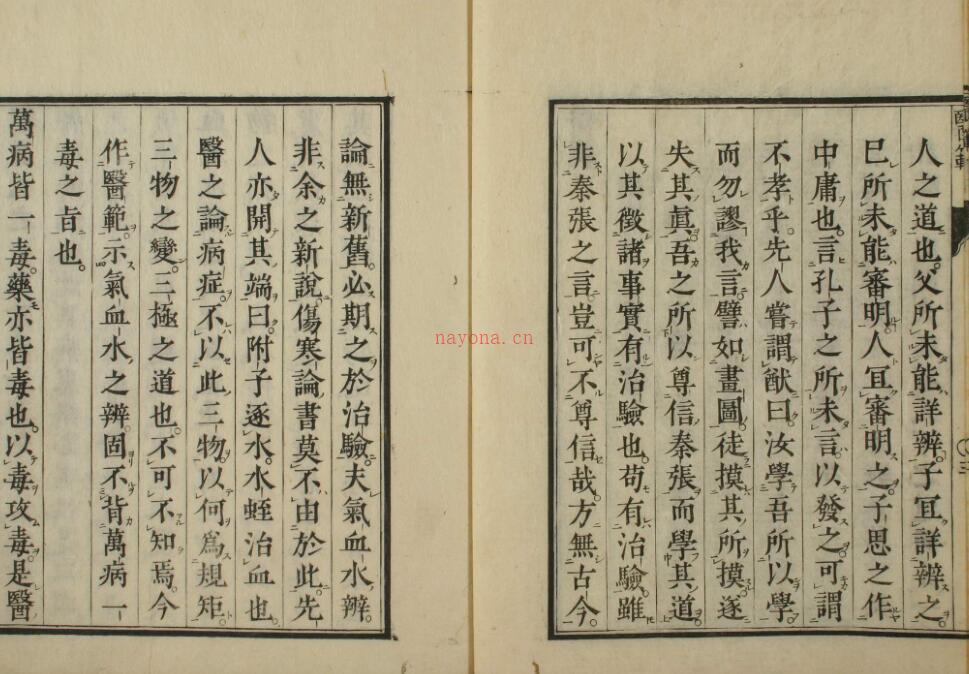 人之道也。父所未能詳辨。子冝詳辨之。
巳所未能審明。人冝審明之。子思之作
中庸也。言孔子之所未言。以發之。可謂
不孝乎。先人嘗謂猷曰。汝學吾所以學
而勿謬我言。譬如畫圖。徒摸其所摸。遂
失其眞。吾之所以尊信秦張而學其道
以其徵諸事實。有治驗也。苟有治驗。雖
非秦張之言。豈可不尊信哉。方無古今。
論無新舊。必期之於治驗。夫氣血水辨。
非余之新說。傷寒論書莫不由於此。先
人亦開其端曰。附子逐水。水蛭治血也。
醫之論病症。不以此三物。以何爲規矩。
三物之變。三極之道也。不可不知焉。今
作醫範。示氣血水之辨。固不背萬病一
毒之㫖也。
萬病皆一毒。藥亦皆毒也。以毒攻毒。是醫
nayona.cn